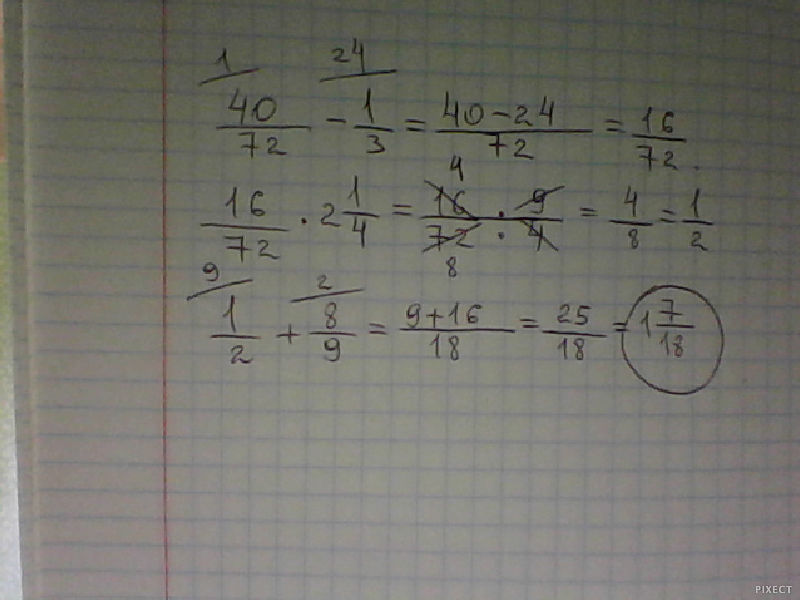 1 24
40/72 - 1/3 = 40-24/72 = 16/72.
4
16/72 · 2 1/4 = 16 · 9/72 · 4 = 4/8 = 1/2
8
9 2
1/2 + 8/9 = 9+16/18 = 25/18 = 1 7/18
PIXECT